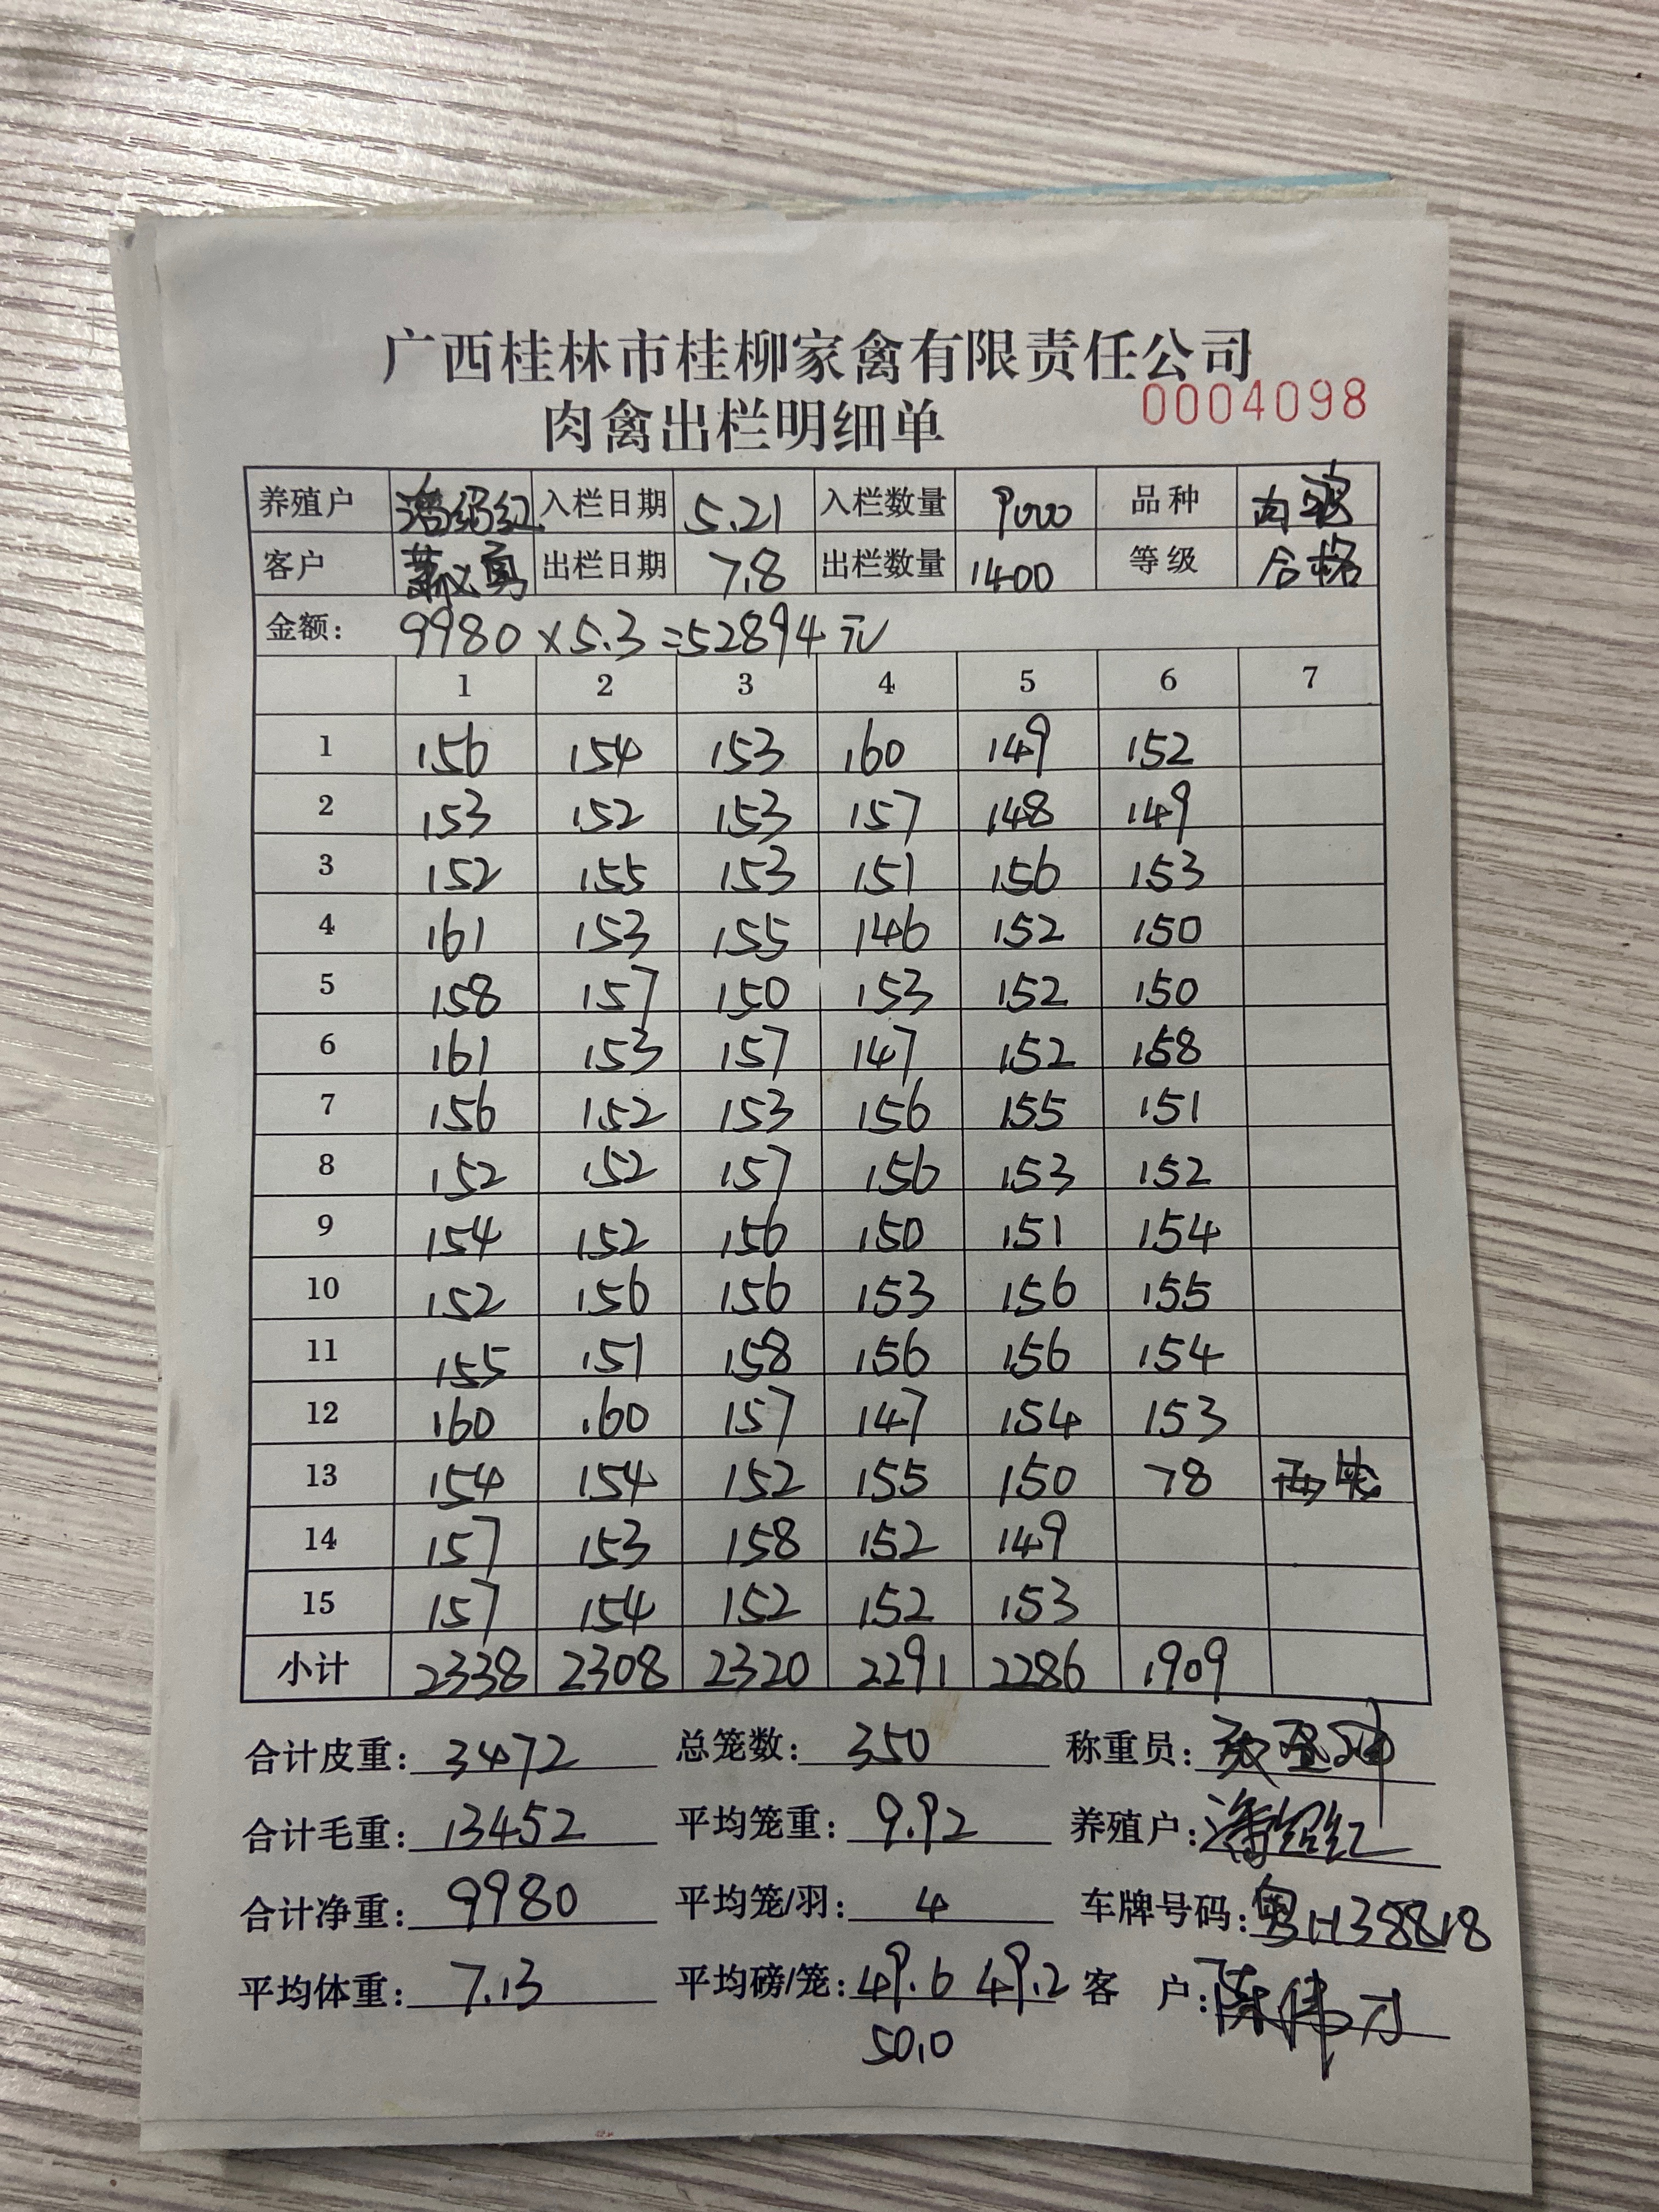 广西桂林市桂柳家禽有限责任公司
肉禽出栏明细单 0004098
养殖户 潘绍红 入栏日期 5.21 入栏数量 9000 品种 肉鸭
客户 出栏日期 7.8 出栏数量 1400 等级 合格
金额: 9980×5.3=52894元
1 2 3 4 5 6 7
1 156 154 153 160 149 152
2 153 152 153 157 148 149
3 152 155 153 151 156 153
4 161 153 155 146 152 150
5 158 157 150 153 152 150
6 161 153 157 147 152 158
7 156 152 153 156 155 151
8 152 152 157 156 153 152
9 154 152 156 150 151 154
10 152 156 156 153 156 155
11 155 151 158 156 156 154
12 160 160 157 147 154 153
13 154 154 152 155 150 78
14 157 153 158 152 149
15 157 154 152 152 153
小计 2338 2308 2320 2291 2286 1909
合计皮重: 3472 总笼数: 350 称重员:
合计毛重: 13452 平均笼重: 9.92 养殖户: 潘绍红
合计净重: 9980 平均笼/羽: 4 车牌号码:
平均体重: 7.13 平均磅/笼: 49.6 49.2 客户: 陈伟
50.0